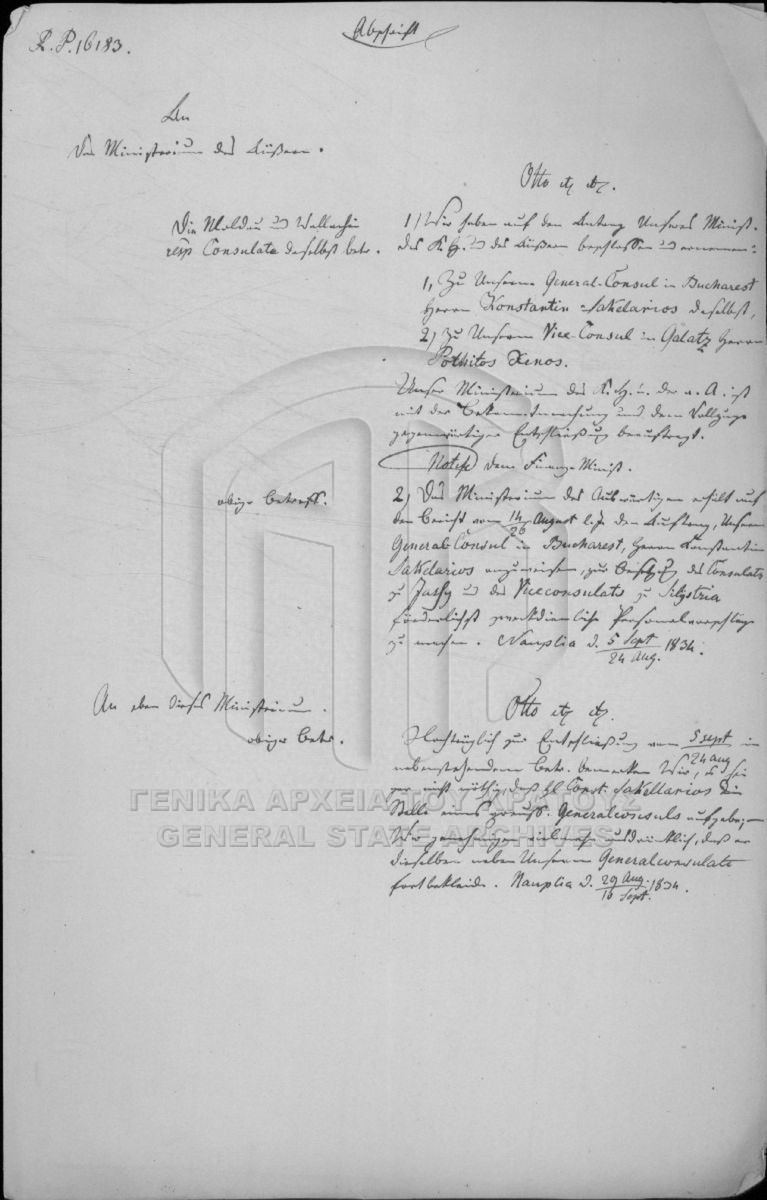 R. P. 16183.
Abschrift
An
das Ministerium des Äußern.
Otto etz etz.
Die Moldau und Wallachei
resp Consulate daselbst betr.
1) Wir haben auf den Antrag Unseres Minist.
des K. H. u des Äußern beschlossen u ernennen:
1, Zu Unserm General-Consul in Bucharest
Herrn Konstantin Sakelarios daselbst,
2) zu Unserm Vice-Consul in Galatz Herrn
Pothitos Xenos.
Unser Ministerium des K. H. u. der a. A. ist
mit der Bekanntmachung und dem Vollzuge
gegenwärtiger Entschließung beauftragt.
Notif dem Finanz-Minist.
obigen Betreffs.
2) Das Ministerium des Auswärtigen erhält auf
den Bericht vom 14/26 August l. J. den Auftrag, Unsern
General-Consul in Bucharest, Herrn Konstantin
Sakelarios anzuweisen, zur Besetzung des Consulats
zu Jassy u des Viceconsulats zu Silystria
förderlichst zweckdienliche Personalvorschläge
zu machen. Nauplia d. 5 Sept/24 Aug. 1834.
An eben dieses Ministerium.
Otto etz etz.
obigen Betr.
Nachträglich zur Entschließung vom 5 Sept/24 aug in
nebenstehendem Betr. bemerken Wir, es sei
gar nicht nöthig, daß H Const. Sakellarios die
Stelle eines preuss. Generalconsuls aufgebe;
Wir genehmigen vielmehr ausdrücklich, daß er
dieselbe neben Unserm Generalconsulate
fortbekleide. Nauplia d. 29 Aug./10 Sept. 1834.
ΓΕΝΙΚΑ ΑΡΧΕΙΑ ΤΟΥ ΚΡΑΤΟΥΣ
GENERAL STATE ARCHIVES